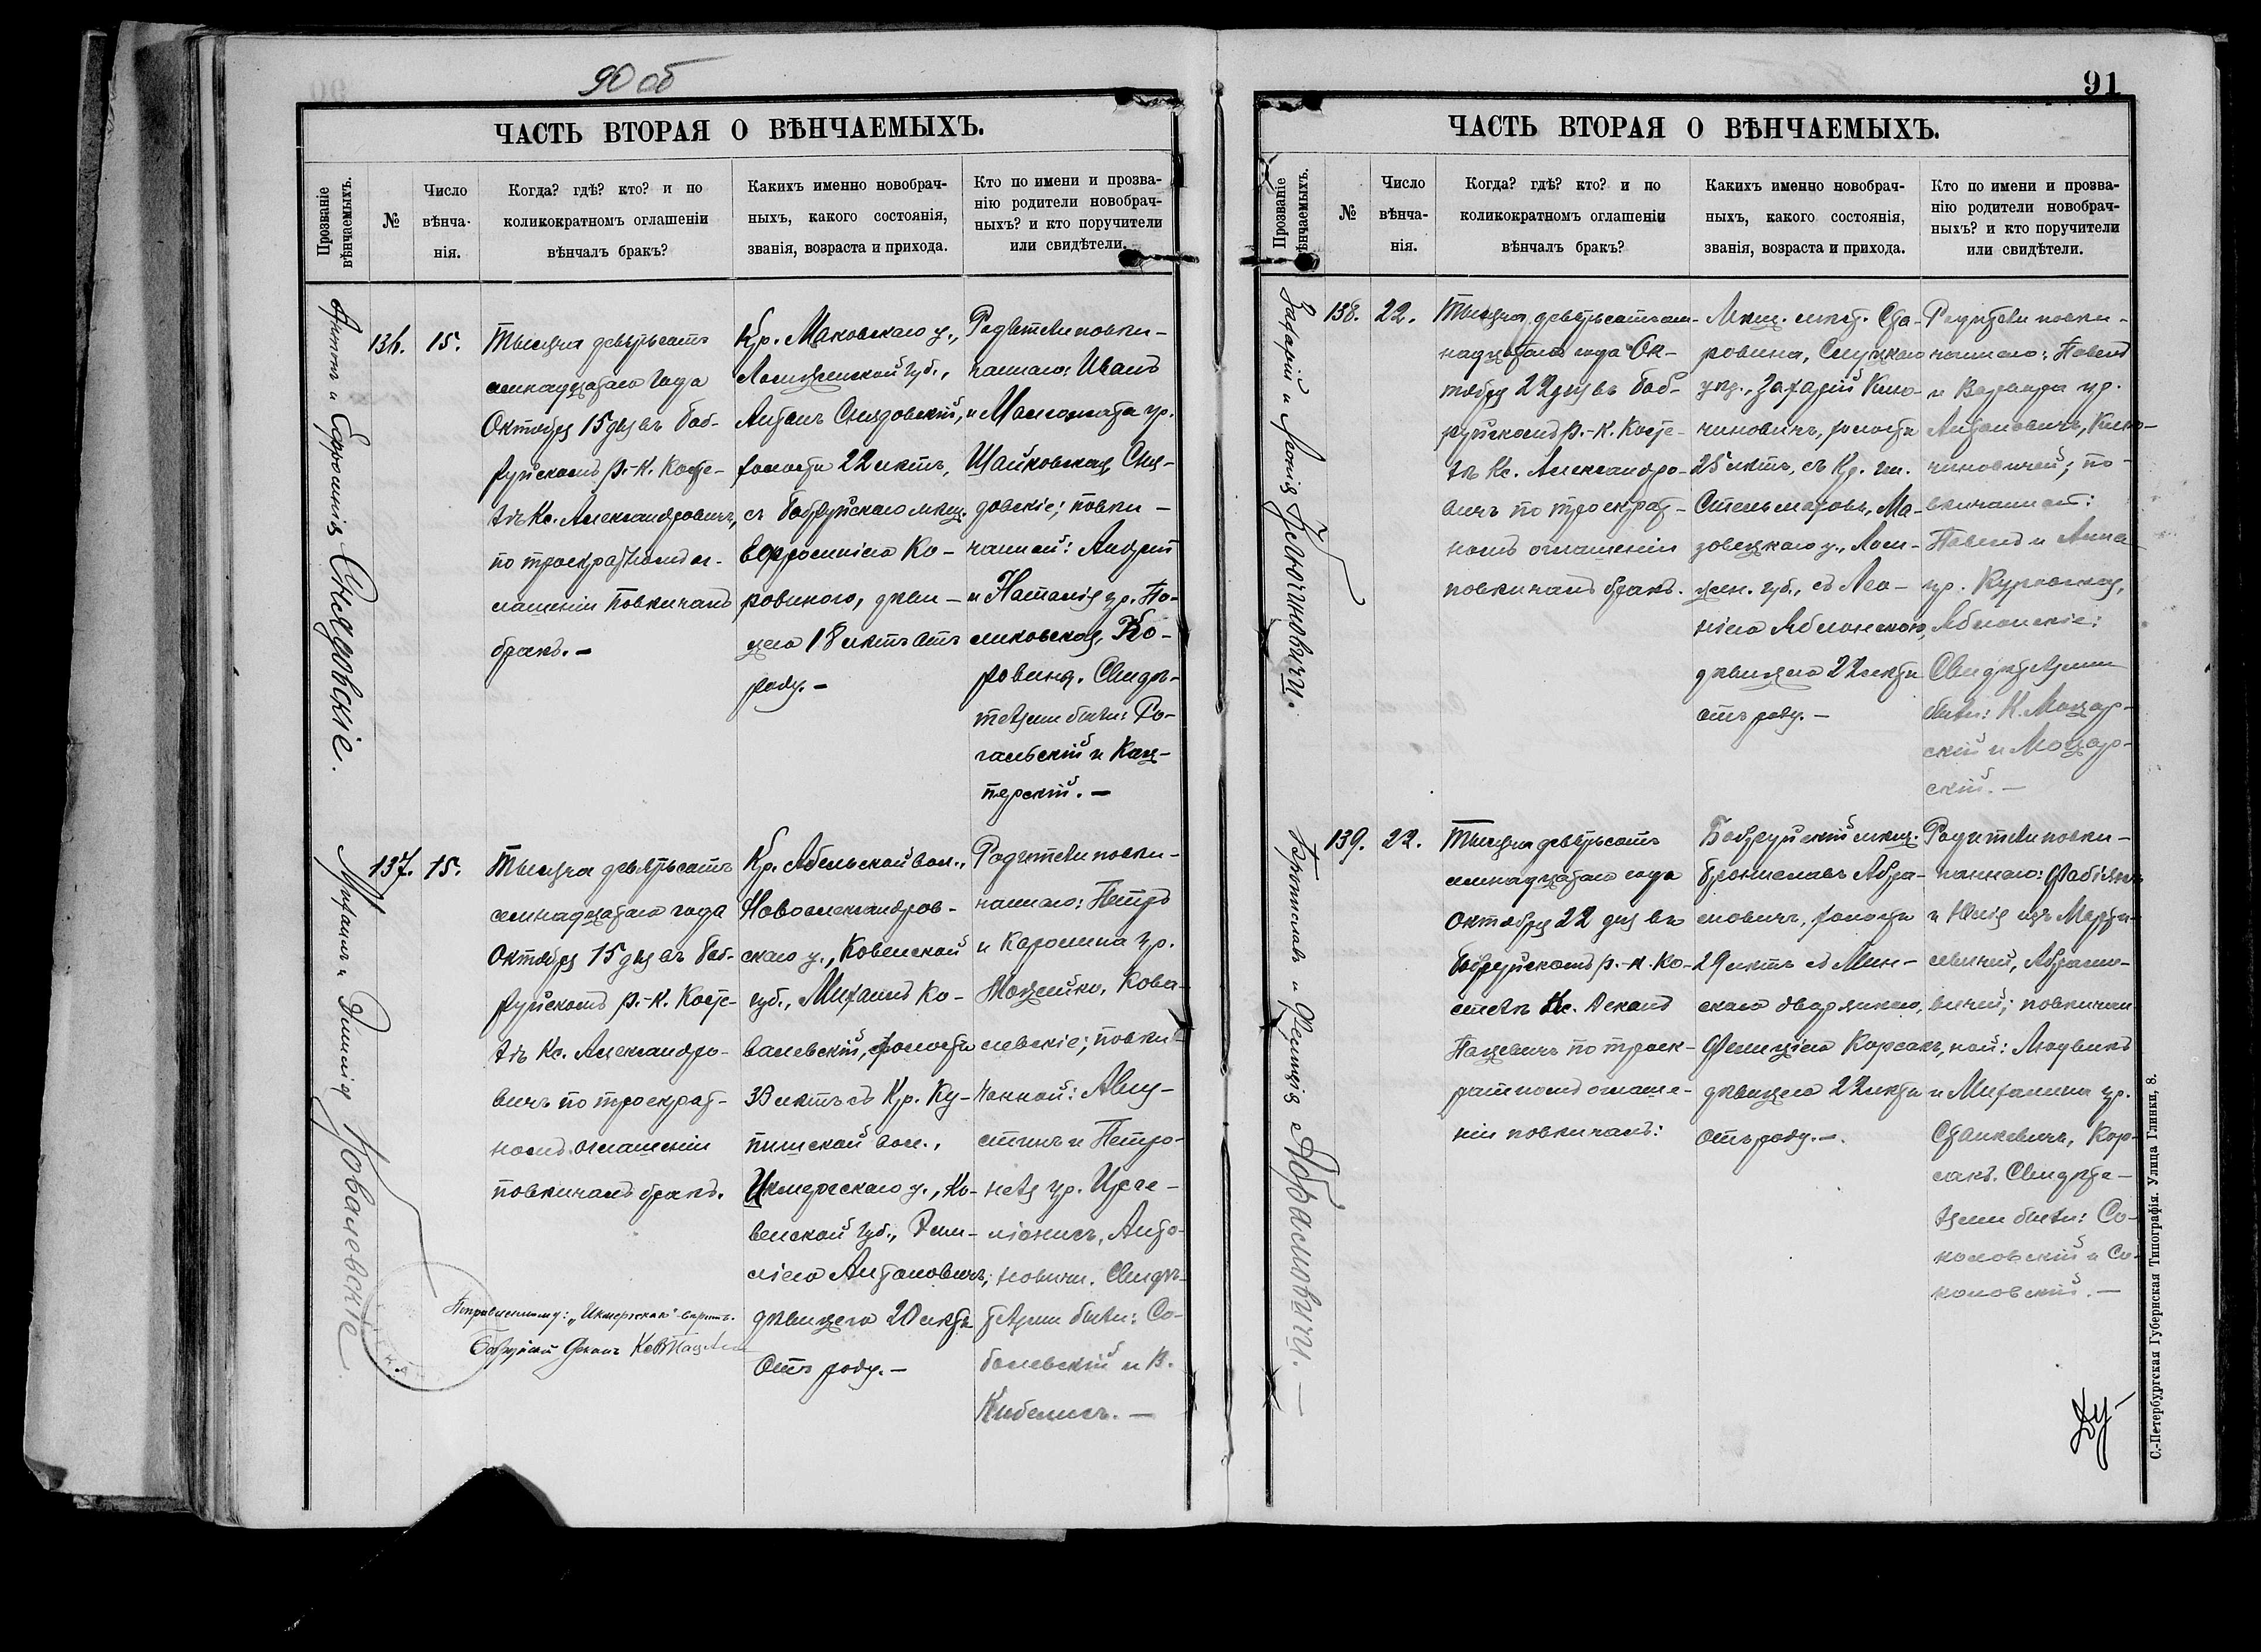 90 об
ЧАСТЬ ВТОРАЯ О ВѢНЧАЕМЫХЪ.
Прозваніе
вѣнчаемыхъ.
№
Число
вѣнча-
нія.
Когда? гдѣ? кто? и по
коликократномъ оглашеніи
вѣнчалъ бракъ?
Какихъ именно новобрач-
ныхъ, какого состоянія,
званія, возраста и прихода.
Кто по имени и прозва-
нію родители новобрач-
ныхъ? и кто поручители
или свидѣтели.
Антонъ и Ефросинія Снядовскіе.
136.
15.
Тысяча девятьсотъ
семнадцатаго года
Октября 15 дня въ Боб-
руйскомъ р.-к. Косте-
лѣ Кс. Александровичъ,
по троекратномъ ог-
лашеніи повѣнчалъ
бракъ. –
Кр. Маковскаго у.,
Ломжинской губ.,
Антонъ Снядовскій,
холостъ 22 лѣтъ,
съ Бобруйскою мѣщ.
Ефросиніею Ко-
ровиною, дѣви-
цею 18 лѣтъ отъ
роду. –
Родители повѣн-
чаннаго: Иванъ
и Малгожата ур.
Щайковская, Сня-
довскіе; повѣн-
чанной: Андрей
и Наталія ур. По-
ликовская, Ко-
ровины. Свидѣ-
телями были: Ро-
гальскій и Кац-
перскій. –
Михаилъ и Эмилія Ковалевскіе.
137.
15.
Тысяча девятьсотъ
семнадцатаго года
Октября 15 дня въ Боб-
руйскомъ р.-к. Косте-
лѣ Кс. Александро-
вичъ по троекрат-
номъ оглашеніи
повѣнчалъ бракъ.
Кр. Абельской вол.,
Новоалександров-
скаго у., Ковенской
губ., Михаилъ Ко-
валевскій, холостъ
30 лѣтъ съ Кр. Ку-
пишской вол.,
Икмерскаго у., Ко-
венской губ., Эми-
ліею Антоновичъ,
дѣвицею 20 лѣтъ
отъ роду. –
Родители повѣн-
чаннаго: Петръ
и Каролина ур.
Можейко, Кова-
левскіе; повѣн-
чанной: Авгу-
стинъ и Петро-
неля ур.
Анто-
новичи. Свидѣ-
телями были: Со-
болевскій и В.
Кибелисъ. –
Исправленному: „Икмерскаго" вѣрить.
Бобруйскій Деканъ
91
ЧАСТЬ ВТОРАЯ О ВѢНЧАЕМЫХЪ.
Прозваніе
вѣнчаемыхъ.
№
Число
вѣнча-
нія.
Когда? гдѣ? кто? и по
коликократномъ оглашеніи
вѣнчалъ бракъ?
Какихъ именно новобрач-
ныхъ, какого состоянія,
званія, возраста и прихода.
Кто по имени и прозва-
нію родители новобрач-
ныхъ? и кто поручители
или свидѣтели.
Захарій и Леонія Ключиновичи.
138.
22.
Тысяча девятьсотъ сем-
надцатаго года Ок-
тября 22 дня въ Боб-
руйскомъ р.-к. Косте-
лѣ Кс. Александро-
вичъ по троекрат-
номъ оглашеніи
повѣнчалъ бракъ.
Мѣщ. мѣст. Ста-
робина, Слуцкаго
уѣз., Захарій Клю-
чиновичъ, холостъ
25 лѣтъ, съ Кр. гм.
Стельмаховъ, Ма-
зовецкаго у., Лом-
жин. губ., съ Лео-
ніею Яблонскою,
дѣвицею 22 лѣтъ
отъ роду. –
Родители повѣн-
чаннаго: Павелъ
и Варвара ур.
Антоновичъ, Клю-
чиновичей; по-
вѣнчанной:
Павелъ и Анна
ур. Куровская,
Яблонскіе:
Свидѣтелями
были: К. Моцар-
скій и Моцар-
скій. –
Брониславъ и Фелиція Абрамовичи. –
139.
22.
Тысяча девятьсотъ
семнадцатаго года
Октября 22 дня въ
Бобруйскомъ р.-к. Ко-
стелѣ Кс. Деканъ
Пацевичъ по троек-
ратномъ оглаше-
ніи повѣнчалъ:
Бобруйскій мѣщ.
Брониславъ Абра-
мовичъ, холостъ
29 лѣтъ съ Мин-
скою дворянкою,
Фелиціею Корсакъ,
дѣвицею 22 лѣтъ
отъ роду. –
Родители повѣн-
чаннаго: Фабіянъ
и Юлія изъ Марти-
севичей, Абрамо-
вичей; повѣнчан
ной: Людвикъ
и Михалина ур.
Станкевичъ, Кор-
сакъ. Свидѣте-
лями были: Со-
коловскій и Со-
коловскій. –
С.-Петербургская Губернская Типографія. Улица Глинки, 8.